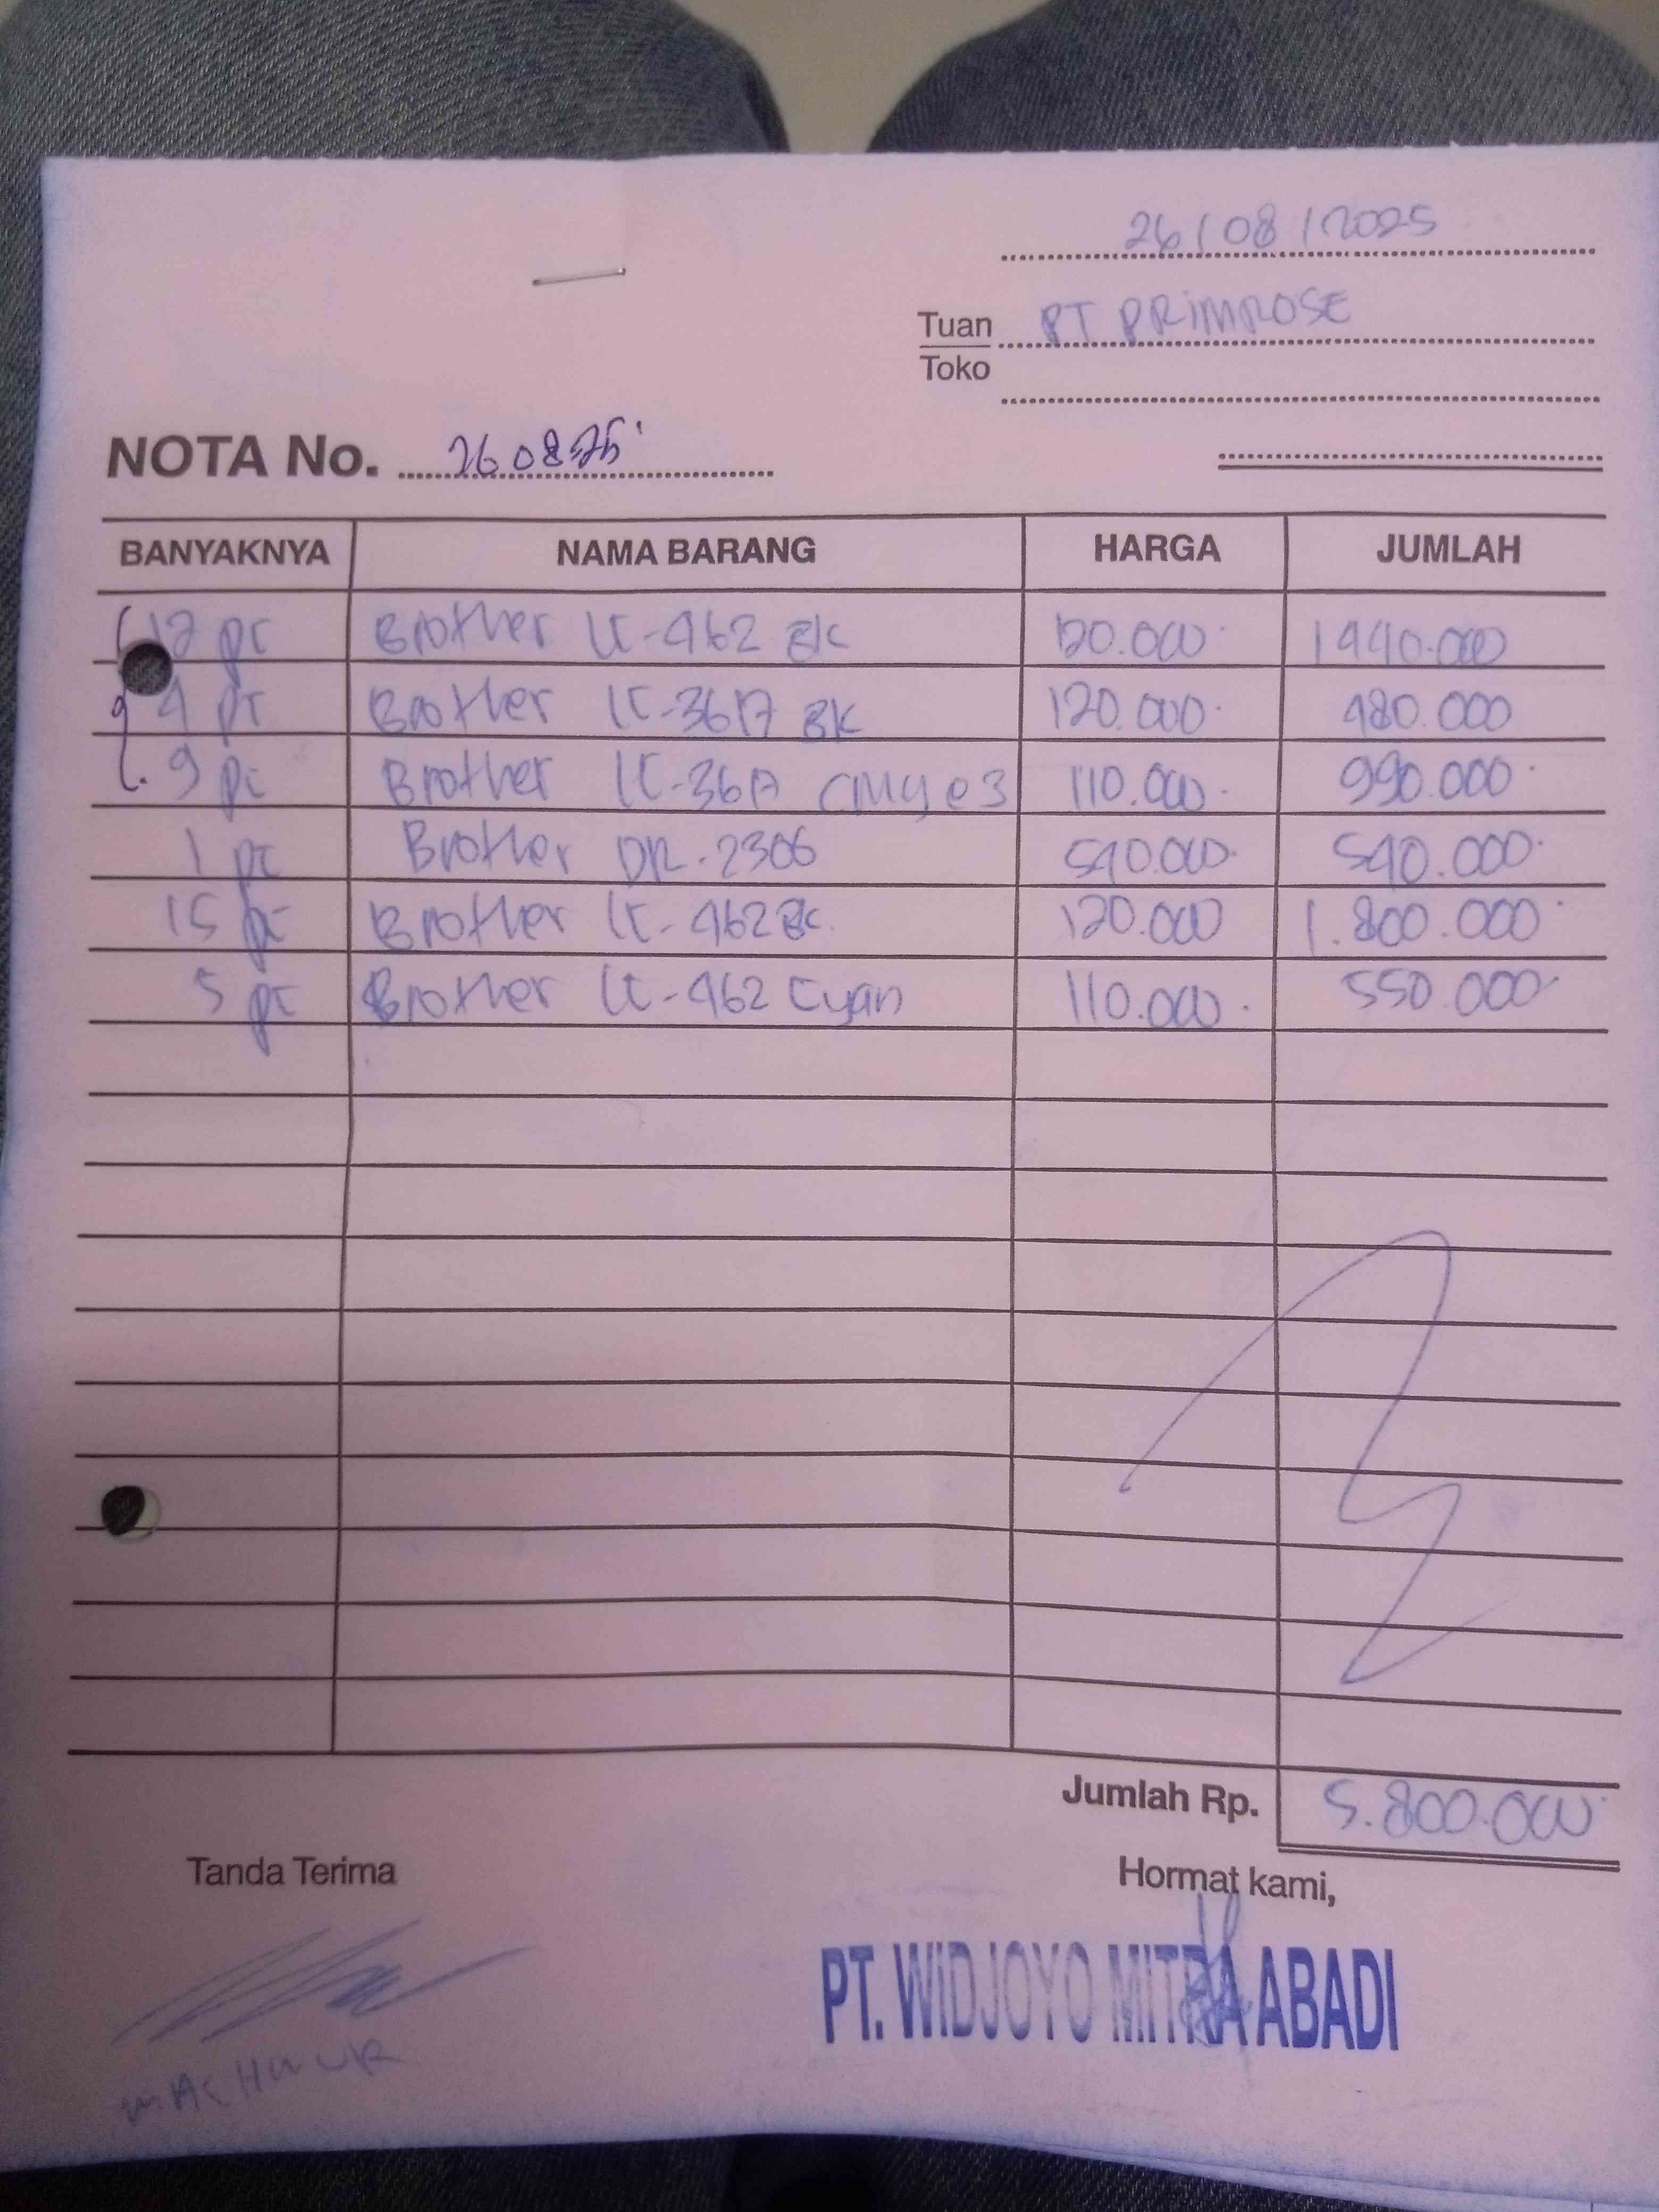 26/08/2025
Tuan PT PRIMROSE
Toko
NOTA No. 260825
BANYAKNYA NAMA BARANG HARGA JUMLAH
12 pc Brother LC-462 BK 120.000 1440.000
4 pc Brother LC-3617 BK 120.000 480.000
9 pc Brother LC-3617 CMY @3 110.000 990.000
1 pc Brother DR-2306 540.000 540.000
15 pc Brother LC-462 BK. 120.000 1.800.000
5 pc Brother LC-462 Cyan 110.000 550.000
Jumlah Rp. 5.800.000
Tanda Terima Hormat kami,
PT. WIDJOYO MITRA ABADI